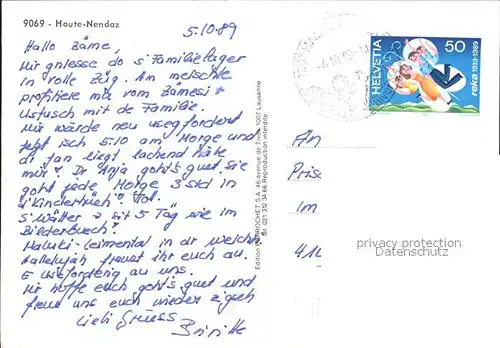 9069 - Haute-Nendaz
5.10.89
Hallo Zäme,
Mir gniesse do s'Familielager
in volle Züg. Am meischte
profitiere mir vom Zämesi +
Ustusch mit de Familie.
Mir würde neu usegfordert
jetzt isch 5.10 am Morge und
di Jan liegt lachend näbe
mir! Dr Anja goht's guet sie
goht jede Morge 3 Std in
d'Kinderhüeti. Toll.
S'Wätter sit 5 Täg wie im
Bilderbuech!
in dr weiche
Hallelujah freut ihr euch au.
E usforderig au uns.
Mir hoffe euch goht's guet und
freue uns euch wieder z'gseh
Liebi Grüess
Brigitte
Edition PERROCHET S.A. 46 avenue de Tivoli 1007 Lausanne
Tél. 021 312 34 66 Reproduction interdite
HELVETIA
50
reka 1939-1989
An
Prise
Im
41
privacy protection
Datenschutz